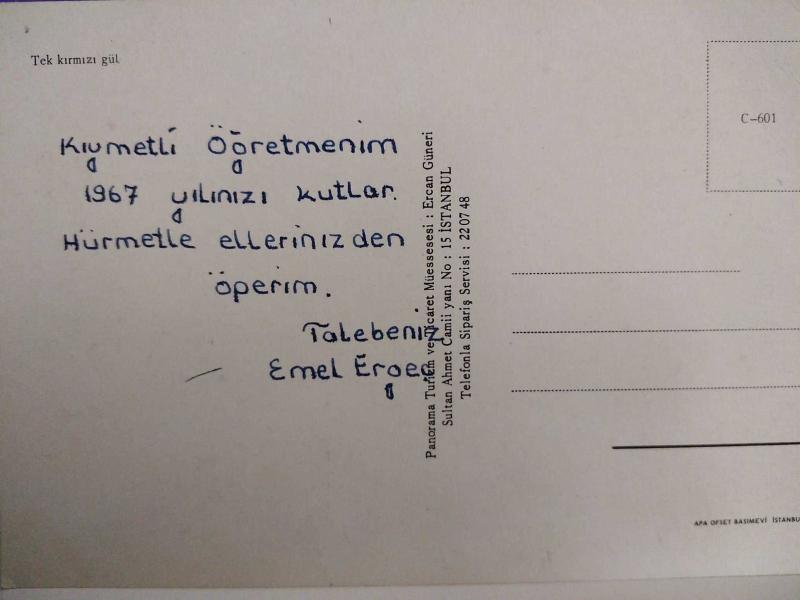 Tek kırmızı gül
Kıymetli Öğretmenim
1967 yılınızı kutlar.
Hürmetle ellerinizden
öperim.
Talebeniz
Emel
Panorama Turizm ve Ticaret Müessesesi : Ercan Güneri
Sultan Ahmet Camii yanı No : 15 İSTANBUL
Telefonla Sipariş Servisi : 22 07 48
C-601
APA OFSET BASIMEVİ İSTANBU